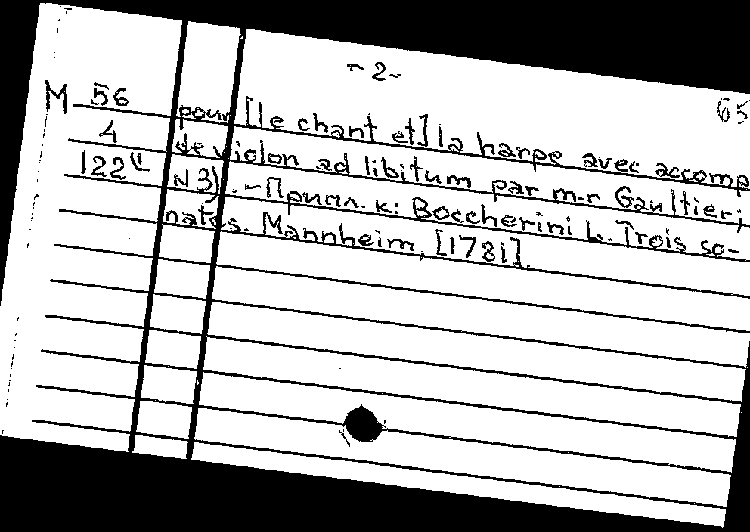 -2-
65
M 56 pour [le chant et] la harpe avec accomp
4 de violon ad libitum par m-r Gaultier;
122 N 3). - Прилл. к: Boccherini L. Trois so-
nates. Mannheim, [1781].